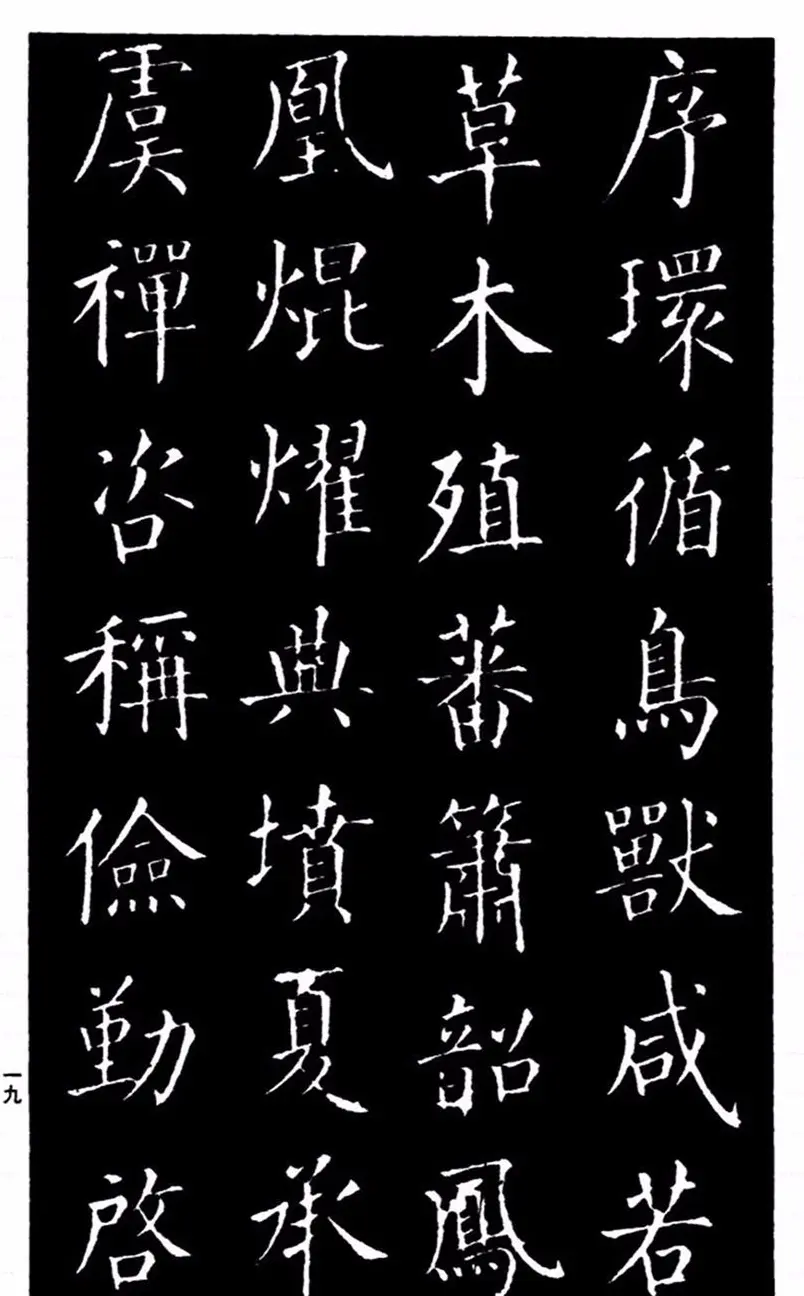 序環循鳥獸咸若
草木殖蕃簫韶鳳
凰焜耀典墳夏承
虞禪咨稱儉勤啓
一九